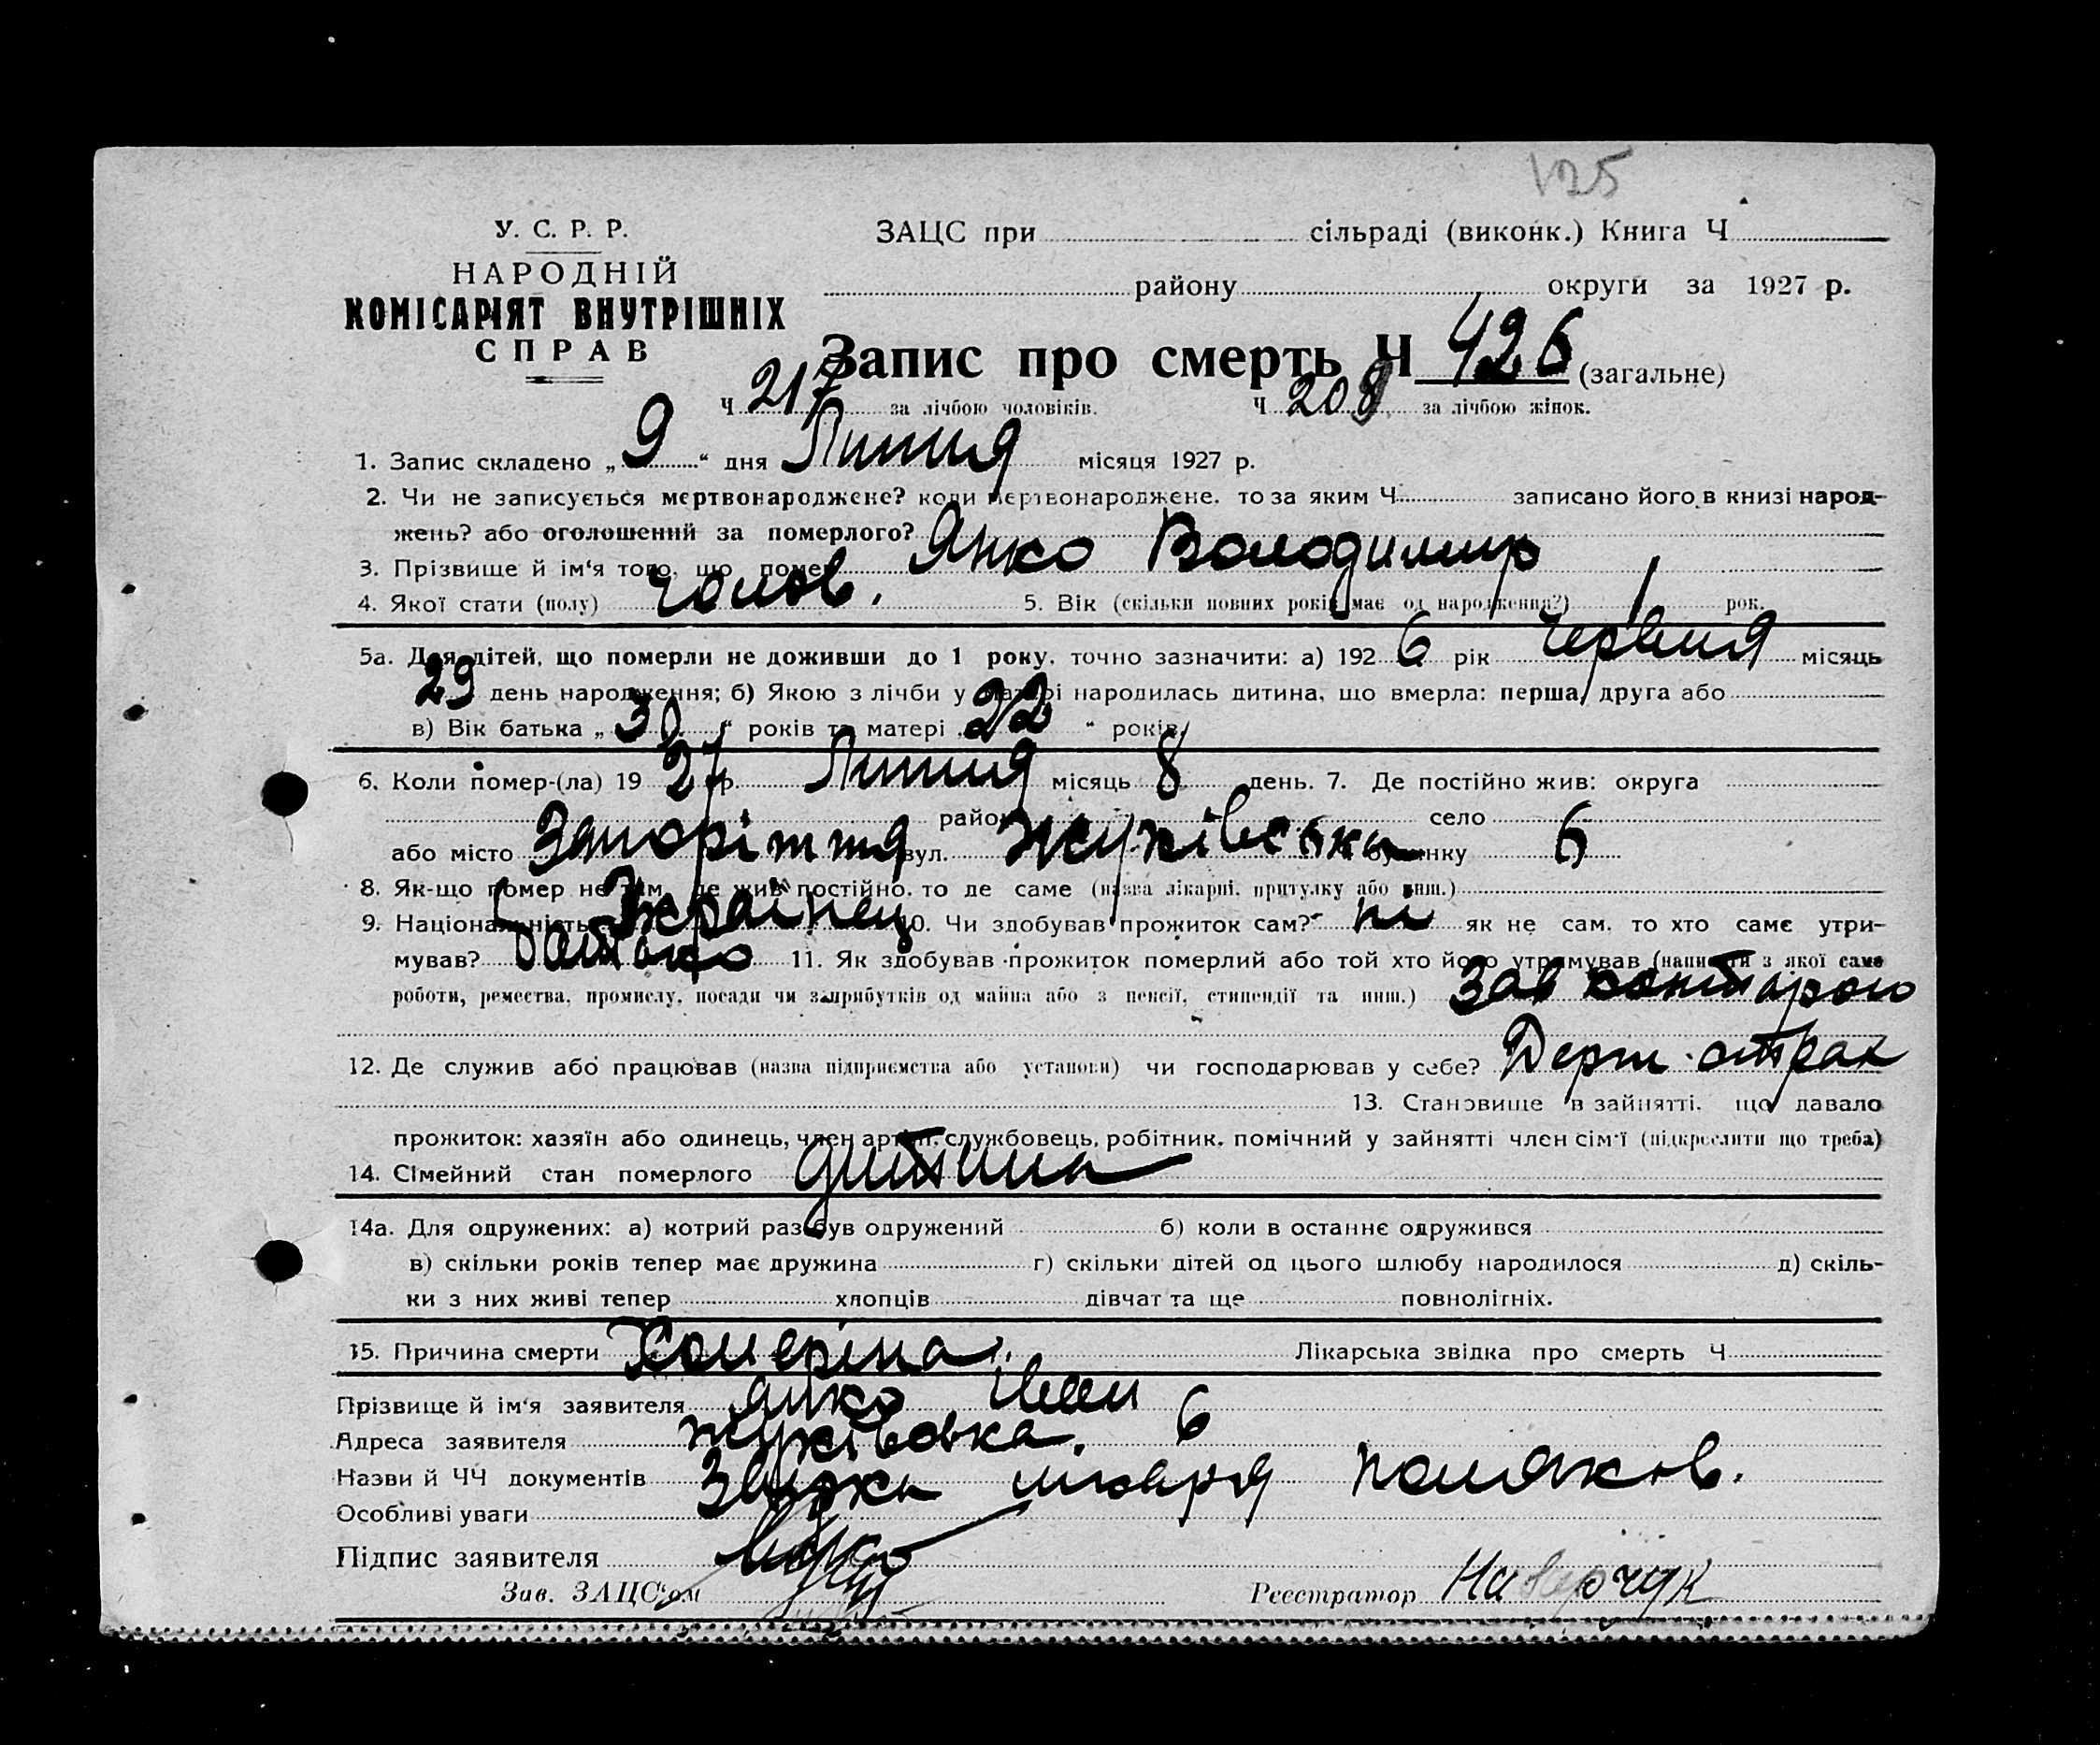 125
У. С. Р. Р.
НАРОДНІЙ
КОМІСАРІЯТ ВНУТРІШНІХ
СПРАВ
ЗАЦС при сільраді (виконк.) Книга Ч
району округи за 1927 р.
Запис про смерть Ч 426 (загальне)
Ч 217 за лічбою чоловіків. Ч 208 за лічбою жінок.
1. Запис складено „ 9 “ дня Липня місяця 1927 р.
2. Чи не записується мертвонароджене? коли мертвонароджене, то за яким Ч. записано його в книзі народ-
жень? або оголошений за померлого?
3. Прізвище й ім'я того, що помер Янко Володимир
4. Якої стати (полу) чолов. 5. Вік (скільки повних років має од народження?) 1 рок.
5а. Для дітей, що померли не доживши до 1 року, точно зазначити: а) 192 6 рік Червня місяць
29 день народження; б) Якою з лічби у матері народилась дитина, що вмерла: перша, друга або
в) Вік батька „ 30 “ років та матері „ 22 “ років.
6. Коли помер-(ла) 19 27 р. Липня місяць 8 день. 7. Де постійно жив: округа
район село
або місто Запоріжжя вул. Жуківська будинку 6
8. Як-що помер не там, де жив постійно, то де саме (назва лікарні, притулку або инш.)
9. Національність Українец 10. Чи здобував прожиток сам? ні як не сам, то хто саме утри-
мував? батько 11. Як здобував прожиток померлий або той хто його утримував (написати з якої саме
роботи, ремества, промислу, посади чи з прибутків од майна або з пенсії, стипендії та инш.) Зав конторою
12. Де служив або працював (назва підприємства або установи) чи господарював у себе? Держ. страх
13. Становище в зайнятті, що давало
прожиток: хазяїн або одинець, член артіл, службовець, робітник, помічний у зайнятті член сім'ї (підкреслити що треба)
14. Сімейний стан померлого дитина
14а. Для одружених: а) котрий раз був одружений б) коли в останнє одружився
в) скільки років тепер має дружина г) скільки дітей од цього шлюбу народилося д) скіль-
ки з них живі тепер хлопців дівчат та ще повнолітніх.
15. Причина смерти Холеріна. Лікарська звідка про смерть Ч
Прізвище й ім'я заявителя Янко Іван
Адреса заявителя Жуківська, 6
Назви й ЧЧ документів Звідка лікаря Поляков.
Особливі уваги
Підпис заявителя
Зав. ЗАЦС'ом Реєстратор